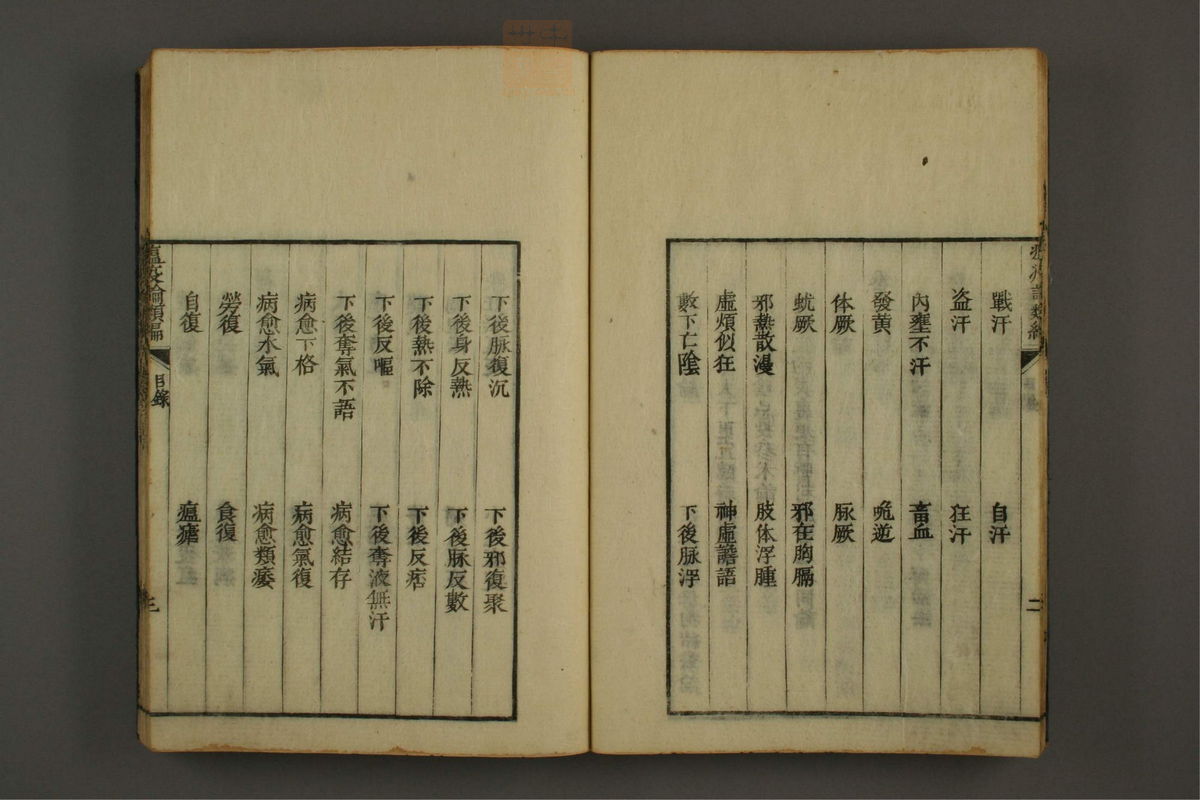 戰汗　自汗
盗汗　狂汗
內壅不汗　畜血
發黄　呃逆
体厥　脉厥
蚘厥　邪在胸膈
邪熱散漫　肢体浮腫
虛煩似狂　神虛譫語
數下亡陰　下後脉浮
二
下後脉復沉　下後邪復聚
下後身反熱　下後脉反數
下後熱不除　下後反痞
下後反嘔　下後奪液無汗
下後奪氣不語　病愈結存
病愈下格　病愈氣復
病愈水氣　病愈類痿
勞復　食復
自復　瘟瘧
瘟疫論類編　目錄　三